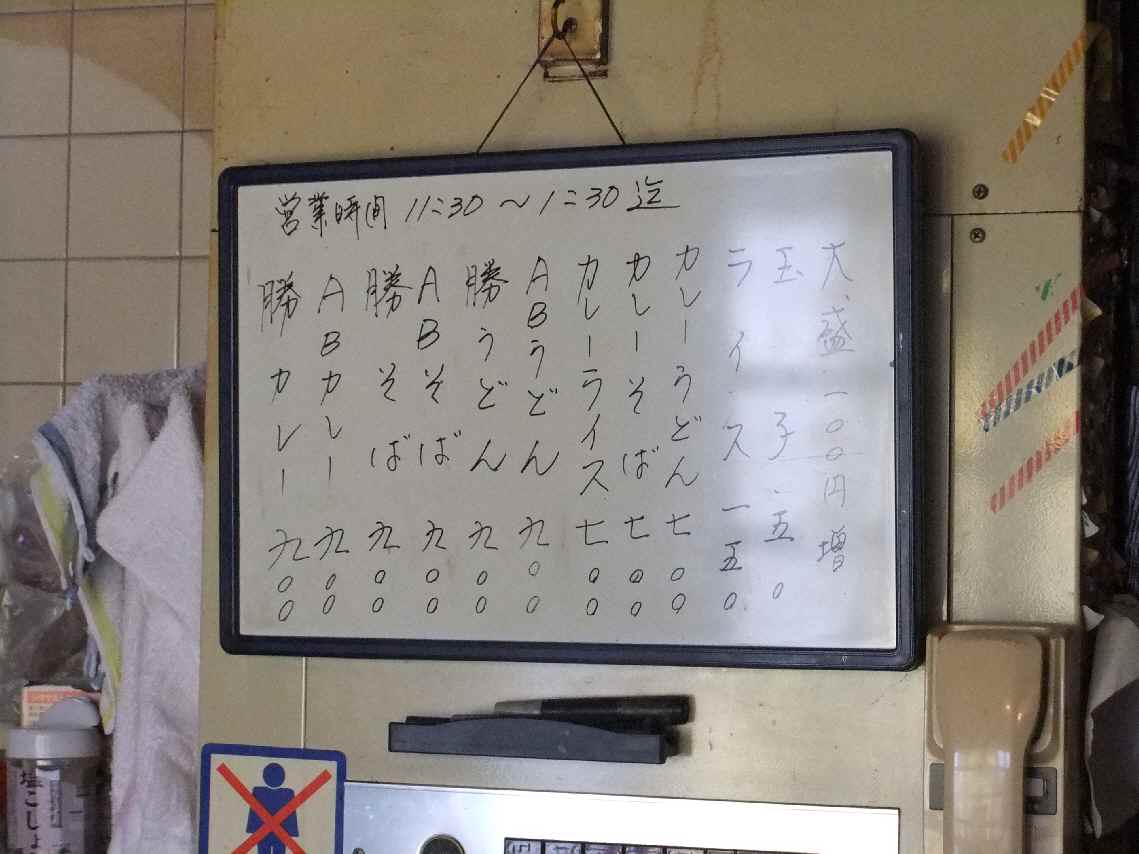 営業時間 11:30〜1:30迄
大盛一〇〇円増
玉子五〇
ライス一五〇
カレーうどん七〇〇
カレーそば七〇〇
カレーライス七〇〇
ABうどん九〇〇
勝うどん九〇〇
ABそば九〇〇
勝そば九〇〇
ABカレー九〇〇
勝カレー九〇〇
塩こしょ